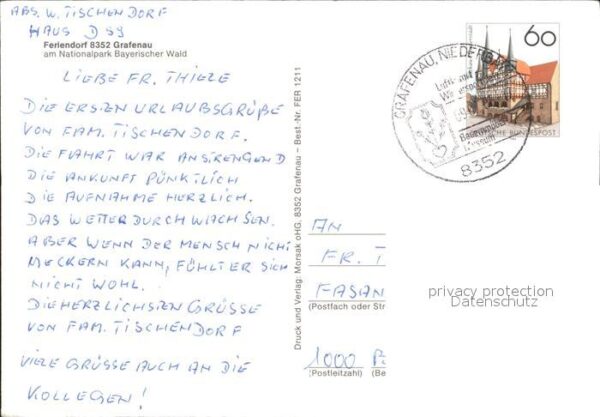 ABS. W. TISCHENDORF
HAUS D 59
Feriendorf 8352 Grafenau
am Nationalpark Bayerischer Wald
LIEBE FR. THIELE
DIE ERSTEN URLAUBSGRÜßE
VON FAM. TISCHENDORF.
DIE FAHRT WAR ANSTRENGEND
DIE ANKUNFT PÜNKTLICH
DIE AUFNAHME HERZLICH.
DAS WETTER DURCHWACHSEN.
ABER WENN DER MENSCH NICHT
MECKERN KANN, FÜHLT ER SICH
NICHT WOHL.
DIE HERZLICHSTEN GRÜSSE
VON FAM. TISCHENDORF
VIELE GRÜSSE AUCH AN DIE
KOLLEGEN!
Druck und Verlag: Morsak oHG, 8352 Grafenau – Best.-Nr. FER 1211
60
BUNDESPOST
GRAFENAU, NIEDERBAY
Luft- und
8352
AN
FR. T
FASAN
(Postfach oder Str
1000
(Postleitzahl) (Be
privacy protection
Datenschutz